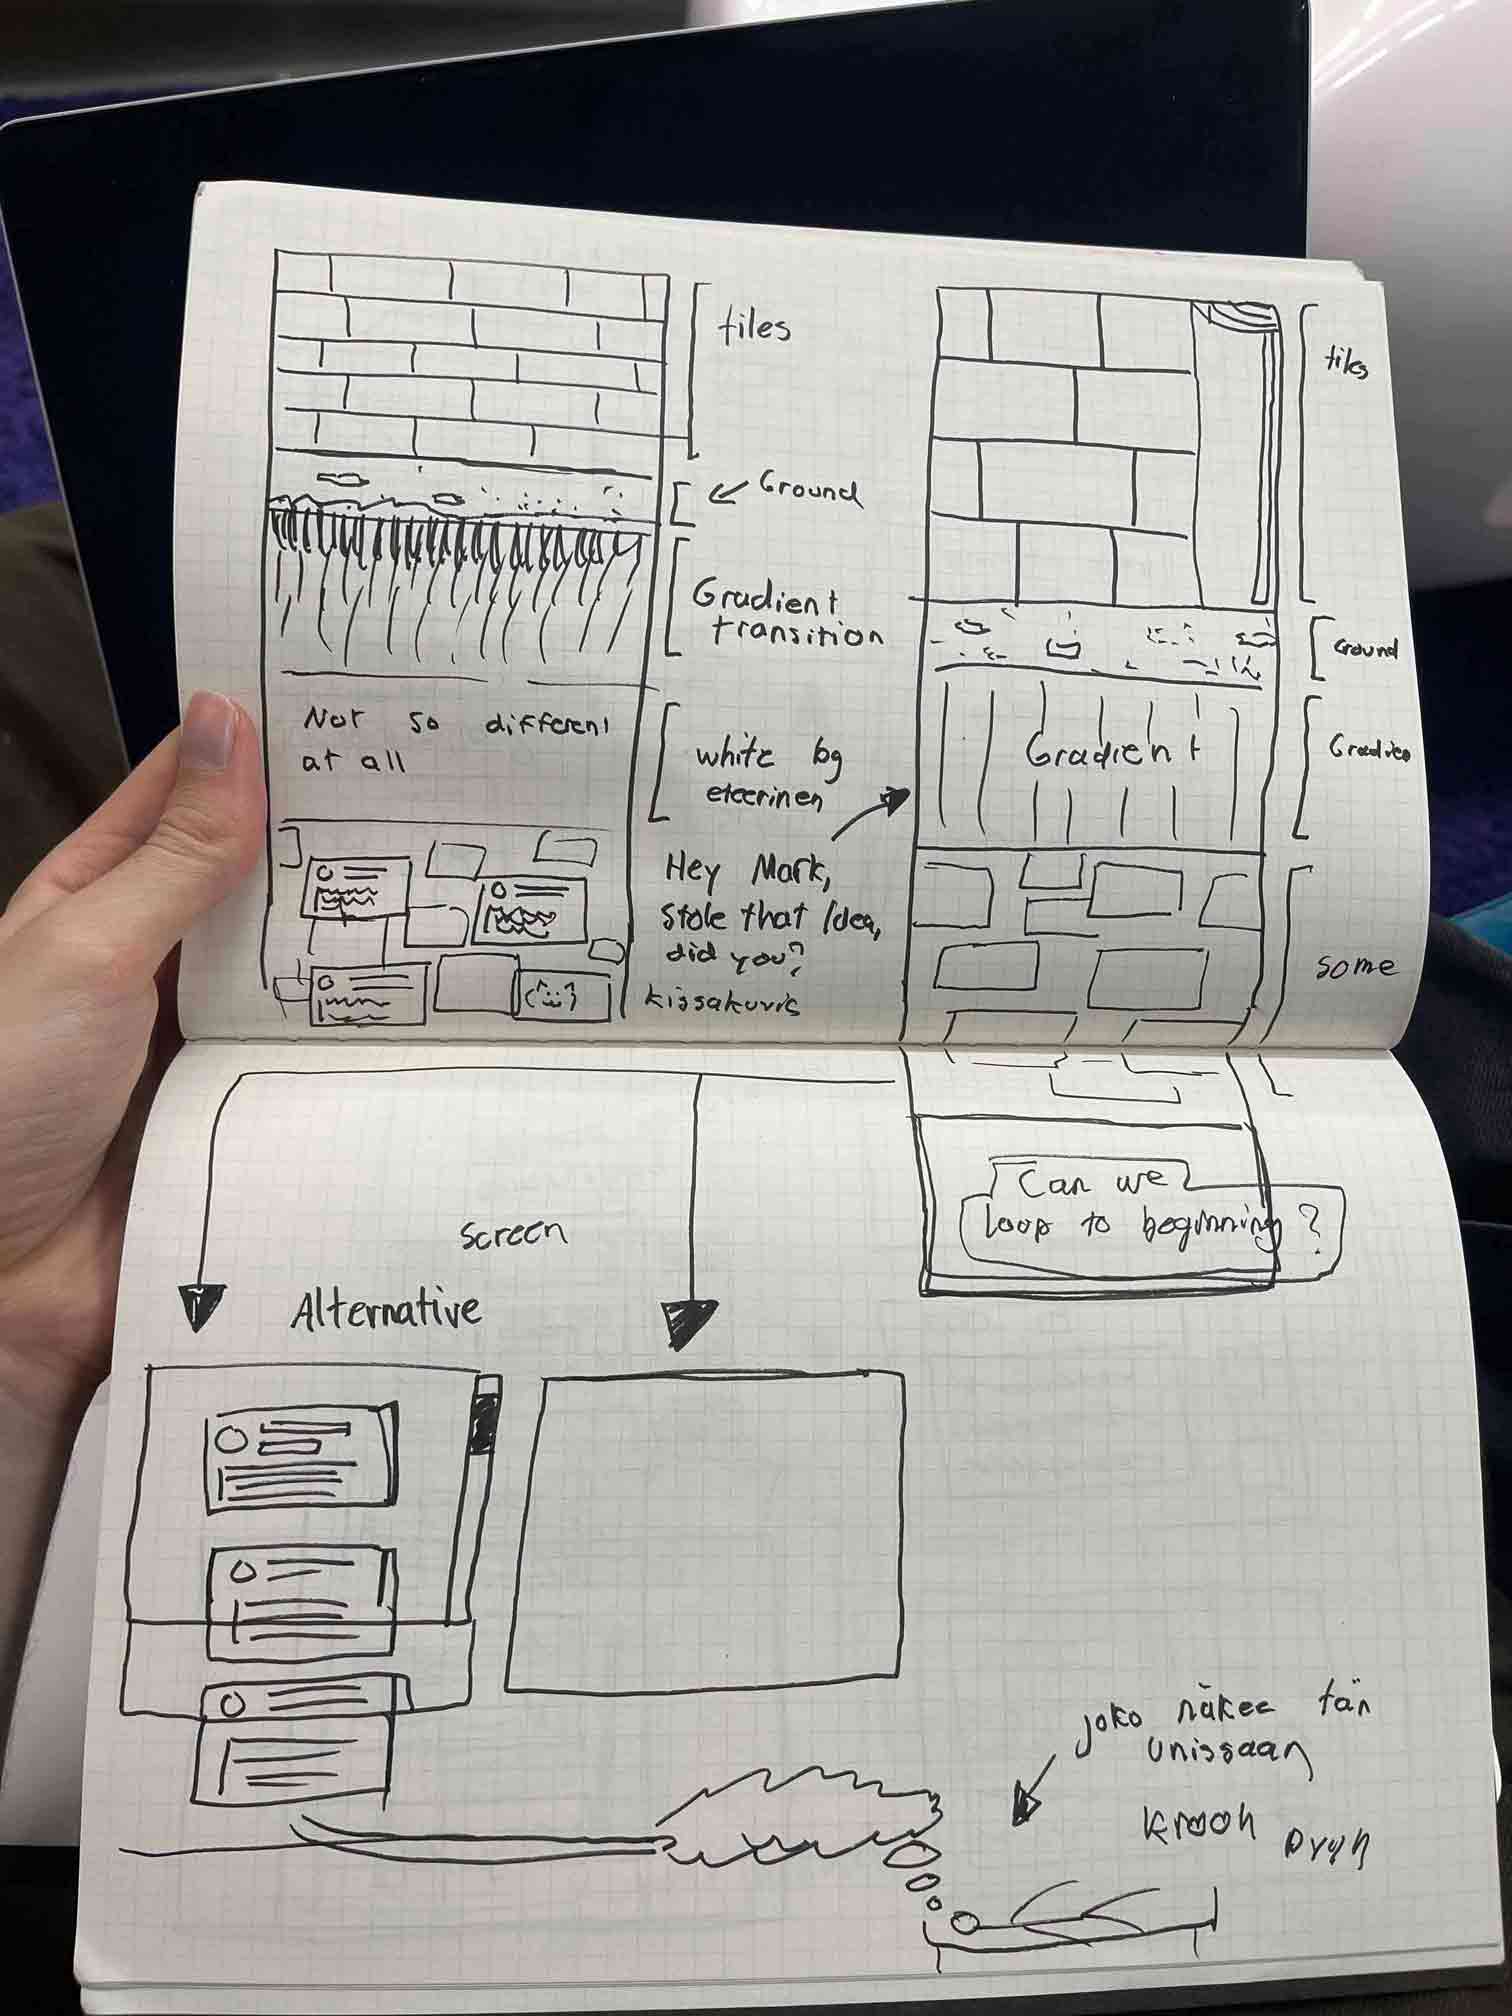 tiles
Ground
Gradient
transition
Not so different
at all
white bg
eteerinen
Hey Mark,
stole that idea,
did you?
kissakuvis
tiles
Ground
Gradient
some
Gradient
Can we
loop to beginning?
screen
Alternative
joko näkee tän
unissaan
krooh